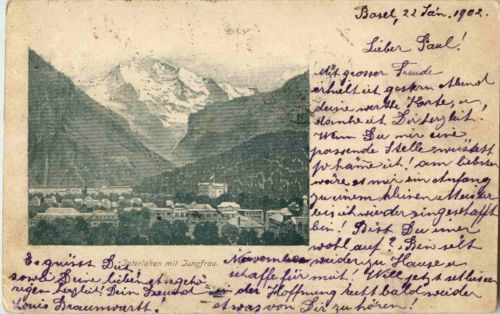 Basel, 22 Jan. 1902.
Lieber Paul!
Mit grosser Freude
erhielt ich gestern Abend
deine werthe Karte, u,
danke ich Dir herzlich.
Wenn Du mir eine
passende Stelle
so käme ich! am liebsten
wäre es mir ein Anfang
zu einem kleinen Meister
bis ich wieder eingeschafft
bin! Bist Du immer
wohl auf? Bin seit
November wieder zu Hause u
schaffe für mich! Will jetzt schliessen
in der Hoffnung recht bald wieder
etwas von Dir zu hören!
Es grüsst Dich
sowie Deine lieben Angehö-
rigen herzlich! Dein Freund
Louis Braunwarth!
Interlaken mit Jungfrau.